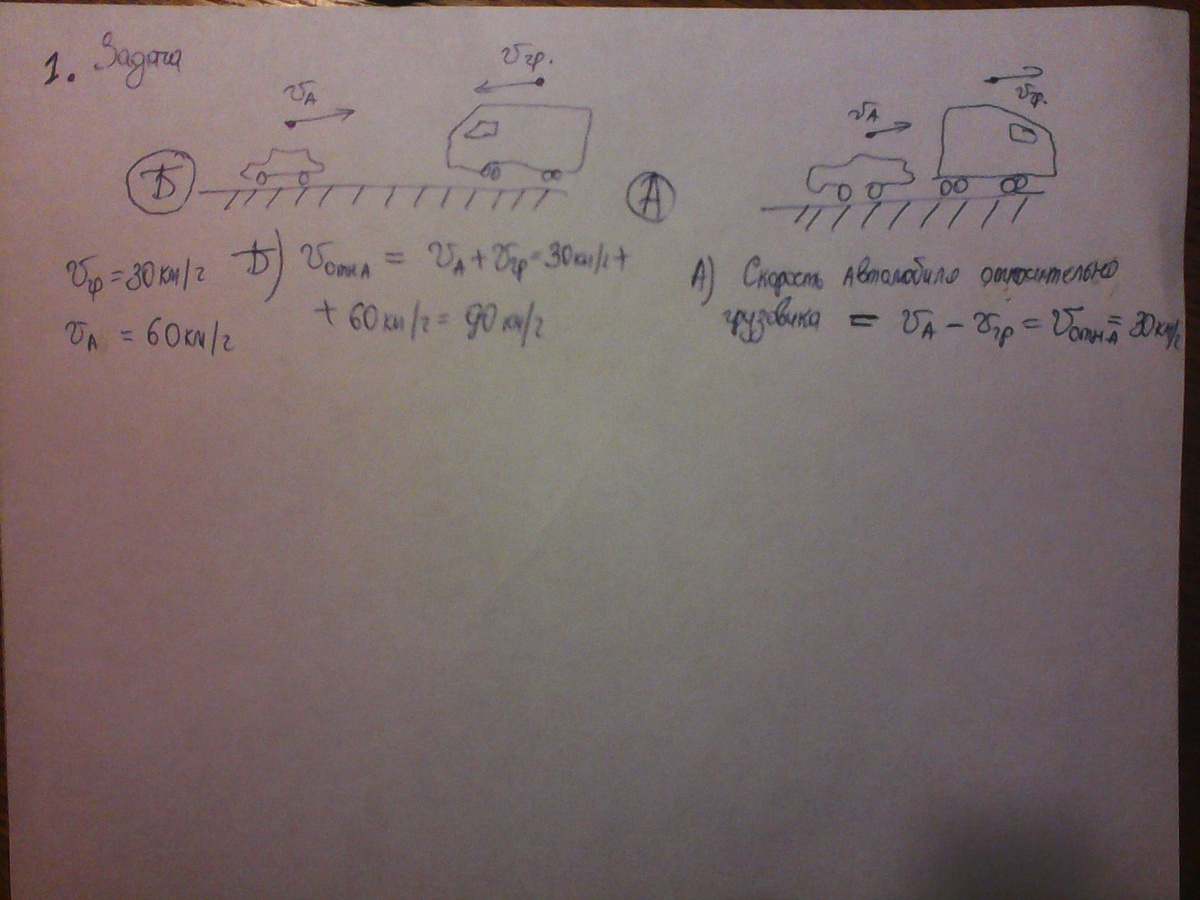 1. Задача
v_A
v_гр.
Б
v_A
v_гр.
А
v_гр = 30 км/г
v_A = 60 км/г
Б) v_отн A = v_A + v_гр = 30 км/г +
+ 60 км/г = 90 км/г
А) Скорость Автомобиля относительно
грузовика = v_A − v_гр = v_отн A = 30 км/г